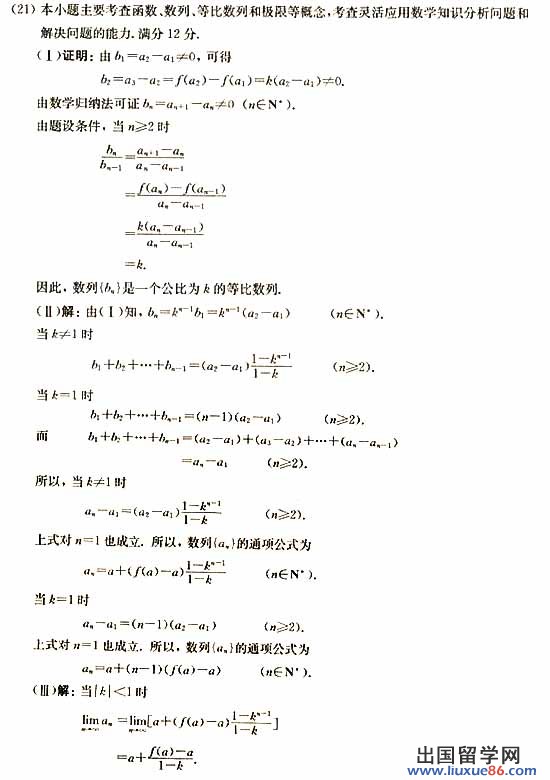 (21) 本小题主要考查函数、数列、等比数列和极限等概念,考查灵活应用数学知识分析问题和
解决问题的能力.满分 12 分.
(Ⅰ)证明:由 b₁=a₂−a₁≠0,可得
b₂=a₃−a₂=f(a₂)−f(a₁)=k(a₂−a₁)≠0.
由数学归纳法可证 bₙ=aₙ₊₁−aₙ≠0 (n∈N*).
由题设条件,当 n⩾2 时
bₙ/bₙ₋₁=(aₙ₊₁−aₙ)/(aₙ−aₙ₋₁)
=(f(aₙ)−f(aₙ₋₁))/(aₙ−aₙ₋₁)
=k(aₙ−aₙ₋₁)/(aₙ−aₙ₋₁)
=k.
因此,数列{bₙ}是一个公比为 k 的等比数列.
(Ⅱ)解:由(Ⅰ)知,bₙ=kⁿ⁻¹b₁=kⁿ⁻¹(a₂−a₁) (n∈N*).
当 k≠1 时
b₁+b₂+⋯+bₙ₋₁=(a₂−a₁)(1−kⁿ⁻¹)/(1−k) (n⩾2).
当 k=1 时
b₁+b₂+⋯+bₙ₋₁=(n−1)(a₂−a₁) (n⩾2).
而 b₁+b₂+⋯+bₙ₋₁=(a₂−a₁)+(a₃−a₂)+⋯+(aₙ−aₙ₋₁)
=aₙ−a₁ (n⩾2).
所以,当 k≠1 时
aₙ−a₁=(a₂−a₁)(1−kⁿ⁻¹)/(1−k) (n⩾2).
上式对 n=1 也成立.所以,数列{aₙ}的通项公式为
aₙ=a+(f(a)−a)(1−kⁿ⁻¹)/(1−k) (n∈N*).
当 k=1 时
aₙ−a₁=(n−1)(a₂−a₁) (n⩾2).
上式对 n=1 也成立.所以,数列{aₙ}的通项公式为
aₙ=a+(n−1)(f(a)−a) (n∈N*).
(Ⅲ)解:当|k|<1 时
lim aₙ=lim[a+(f(a)−a)(1−kⁿ⁻¹)/(1−k)]
n→∞ n→∞
=a+(f(a)−a)/(1−k).
出国留学网
www.liuxue86.com